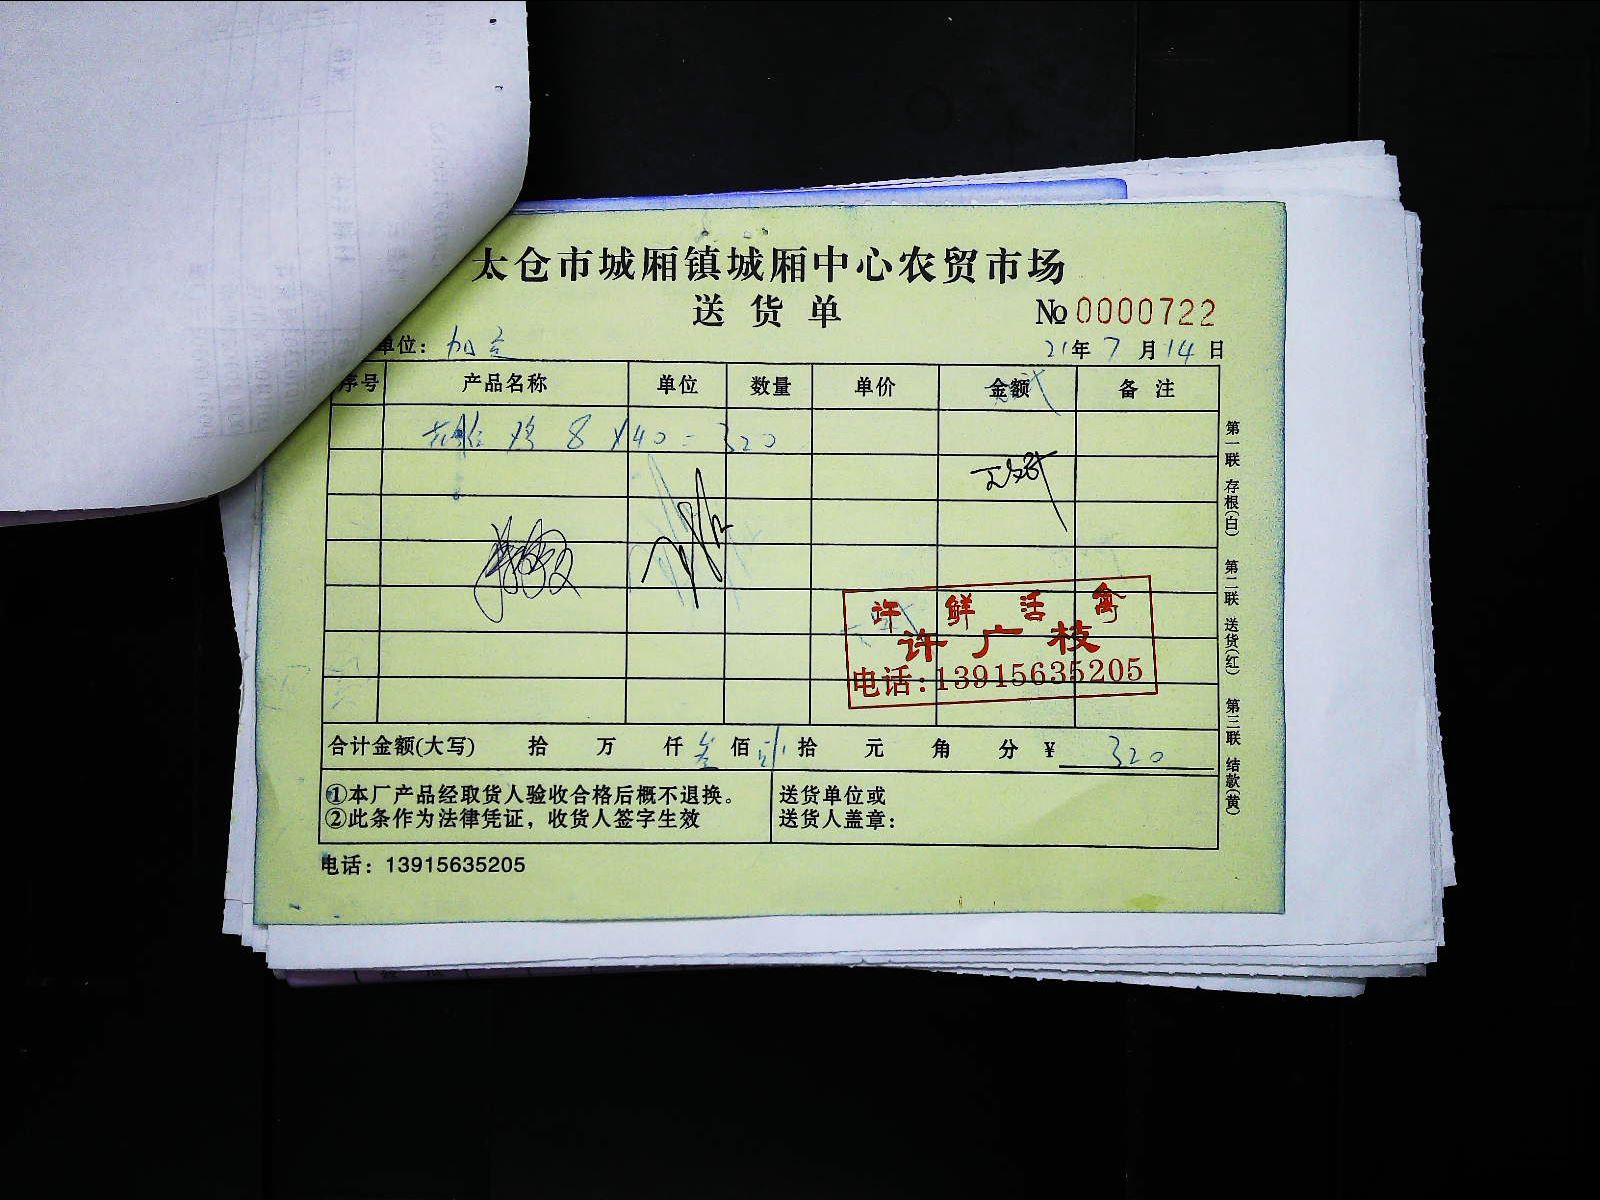 太仓市城厢镇城厢中心农贸市场
送货单
№0000722
单位：
21年 7 月 14 日
序号 产品名称 单位 数量 单价 金额 备注
鸡 8 ×40=320
许 鲜 活 禽
许广枝
电话:13915635205
合计金额(大写) 拾 万 仟 叁 佰 贰 拾 元 角 分 ¥ 320
①本厂产品经取货人验收合格后概不退换。
②此条作为法律凭证，收货人签字生效
送货单位或
送货人盖章：
电话：13915635205
第一联 存根(白) 第二联 送货(红) 第三联 结款(黄)